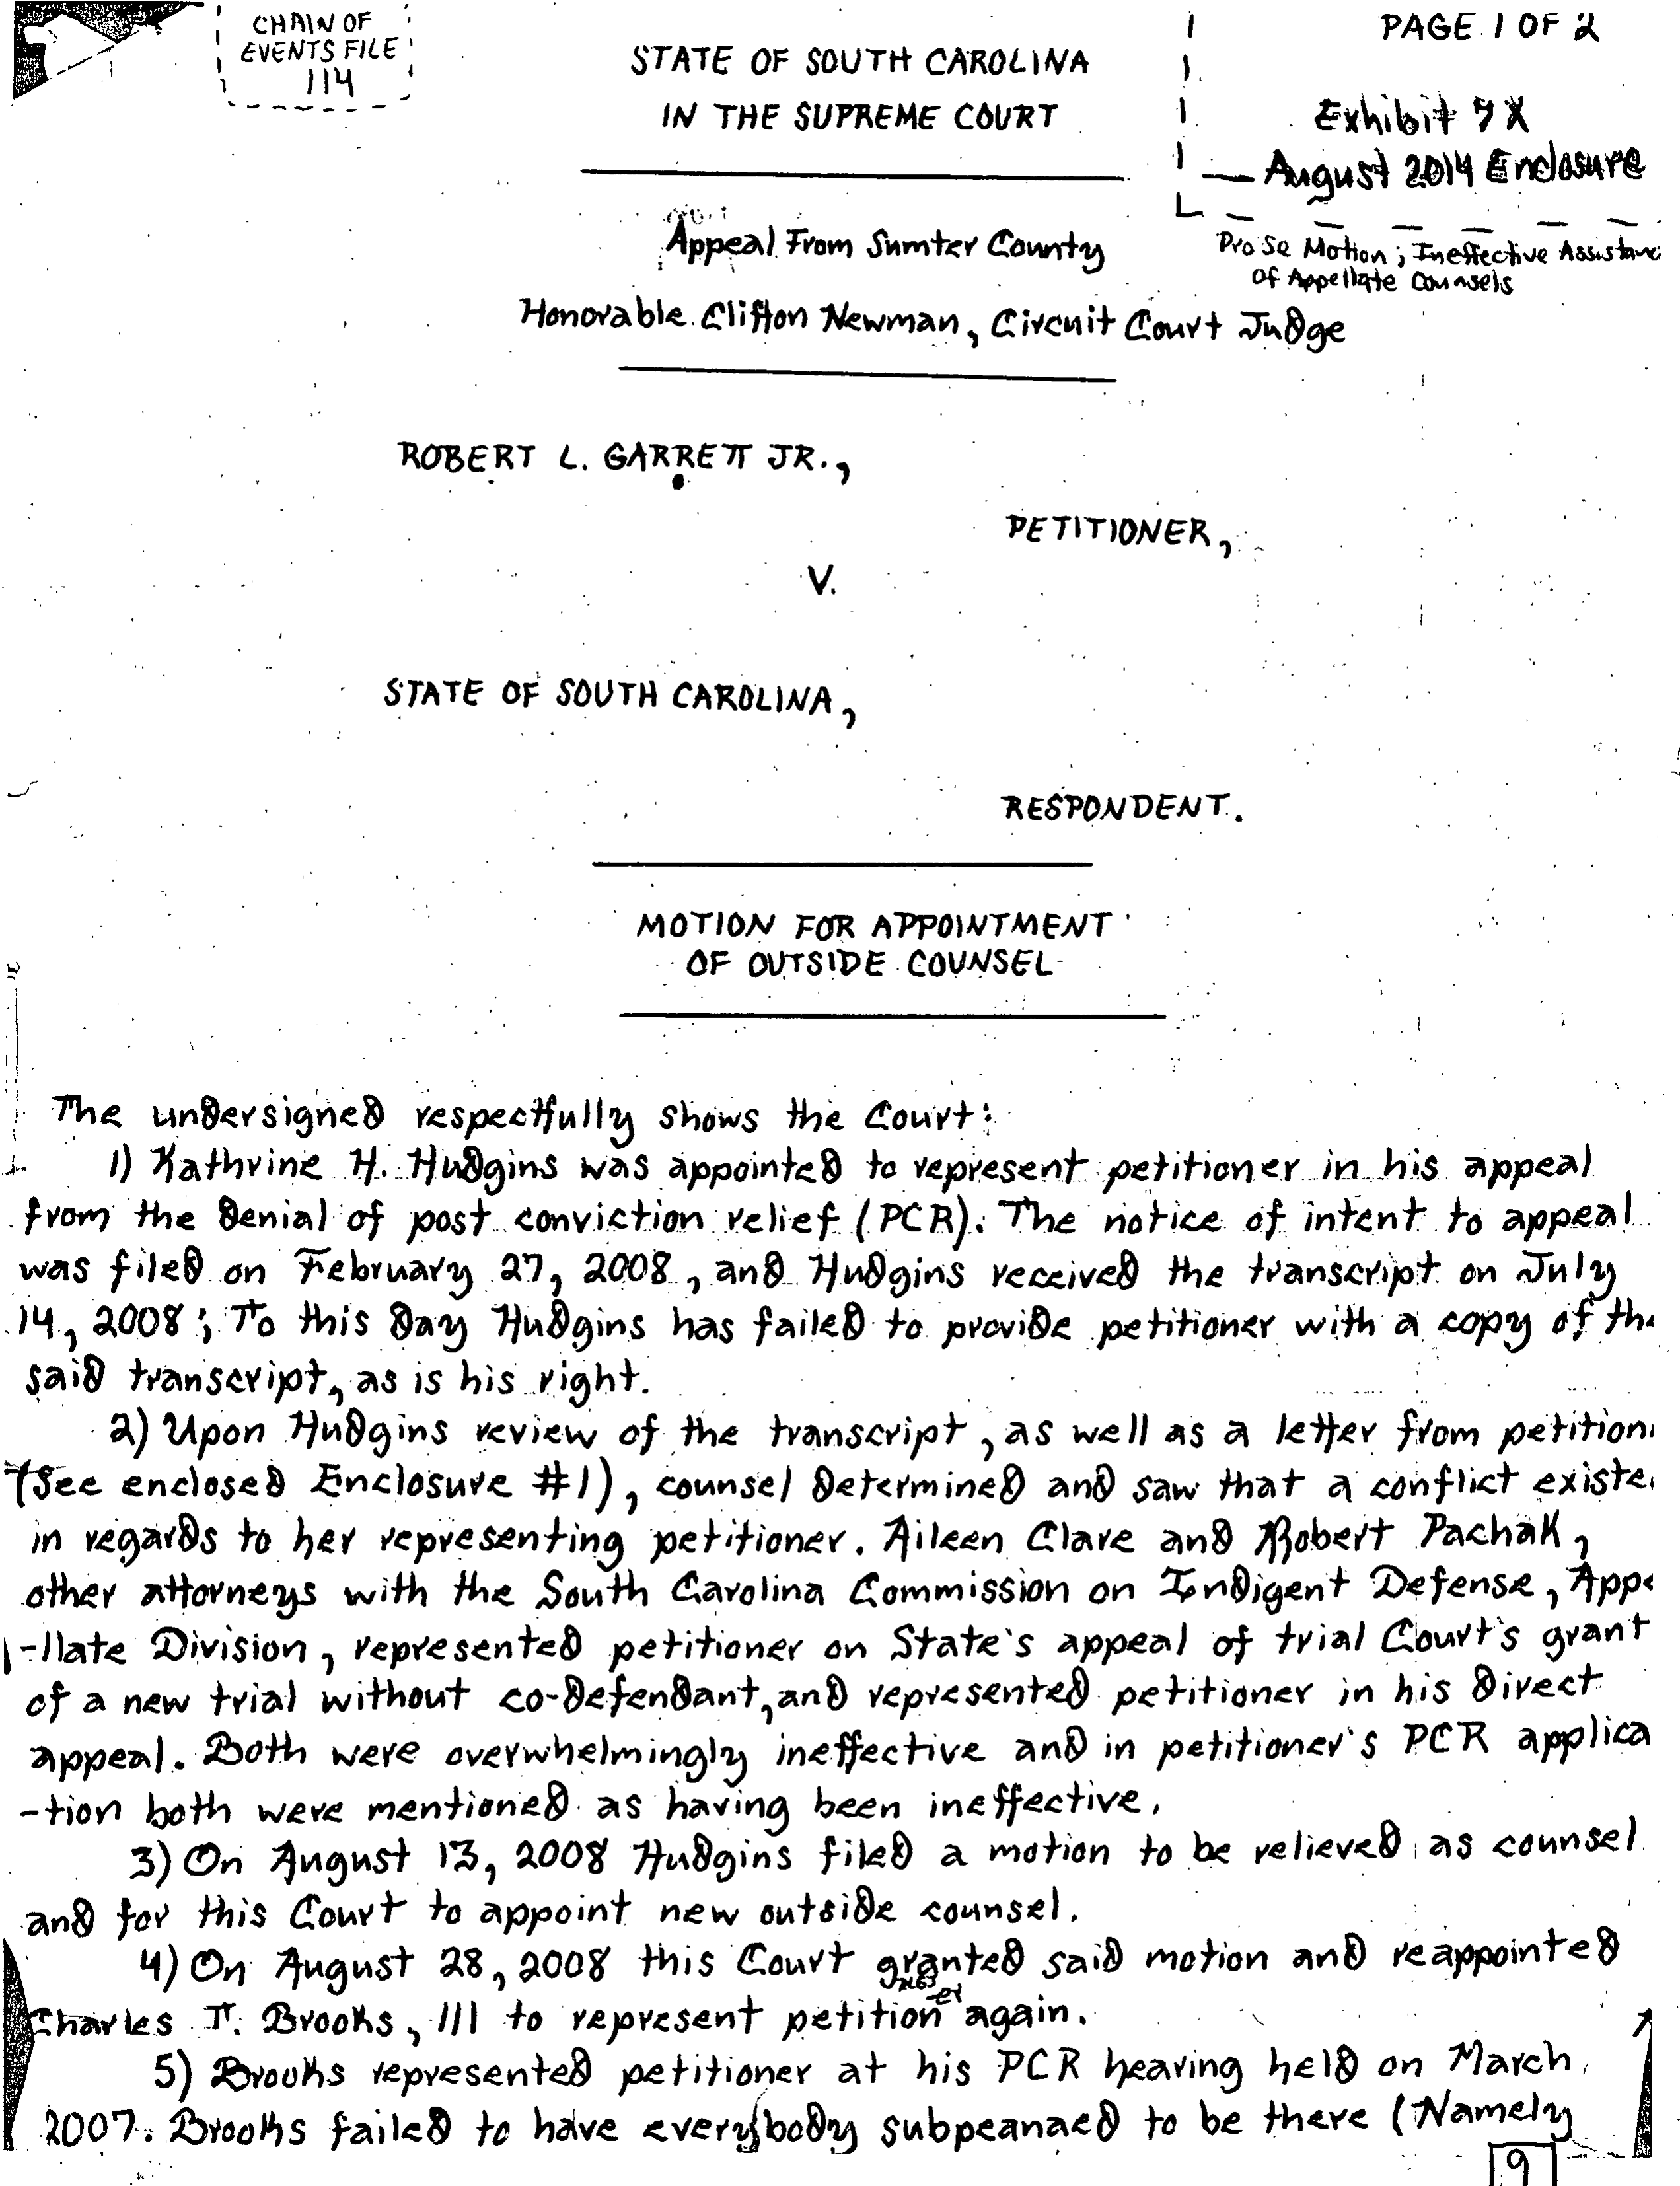 CHAIN OF
EVENTS FILE
114
PAGE 1 OF 2
STATE OF SOUTH CAROLINA
IN THE SUPREME COURT
Exhibit 9 X
— August 2014 Enclosure
Pro Se Motion; Ineffective Assistanc
of Appellate Counsels
Appeal From Sumter County
Honorable Clifton Newman, Circuit Court Judge
ROBERT L. GARRETT JR.,
PETITIONER,
V.
STATE OF SOUTH CAROLINA,
RESPONDENT.
MOTION FOR APPOINTMENT
OF OUTSIDE COUNSEL
The undersigned respectfully shows the Court:
1) Kathrine H. Hudgins was appointed to represent petitioner in his appeal
from the denial of post conviction relief (PCR). The notice of intent to appeal
was filed on February 27, 2008, and Hudgins received the transcript on July
14, 2008; To this day Hudgins has failed to provide petitioner with a copy of the
said transcript, as is his right.
2) Upon Hudgins review of the transcript, as well as a letter from petition
(See enclosed Enclosure #1), counsel determined and saw that a conflict existe
in regards to her representing petitioner. Aileen Clare and Robert Pachak,
other attorneys with the South Carolina Commission on Indigent Defense, Appe
-llate Division, represented petitioner on State's appeal of trial Court's grant
of a new trial without co-defendant, and represented petitioner in his direct
appeal. Both were overwhelmingly ineffective and in petitioner's PCR applica
-tion both were mentioned as having been ineffective.
3) On August 13, 2008 Hudgins filed a motion to be relieved as counsel
and for this Court to appoint new outside counsel.
4) On August 28, 2008 this Court granted said motion and reappointed
Charles T. Brooks, III to represent petitioner again.
5) Brooks represented petitioner at his PCR hearing held on March,
2007. Brooks failed to have everybody subpeanaed to be there (Namely
9